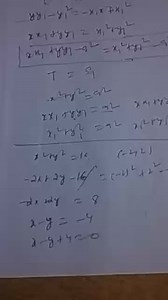 yy₁ - y₁² = -x₁x + x₁²
xx₁ + yy₁ = x₁² + y₁²
xx₁ + yy₁ - a² = x₁² + y₁² -
T = S₁
x² + y² = a²
xx₁ + yy₁ = a²
x₁² + y₁² = a²
x² + y² = 16 (-2, 2)
-2x + 2y - 16 = (-2)² + 2² -
-2x + 2y = 8
x - y = -4
x - y + 4 = 0